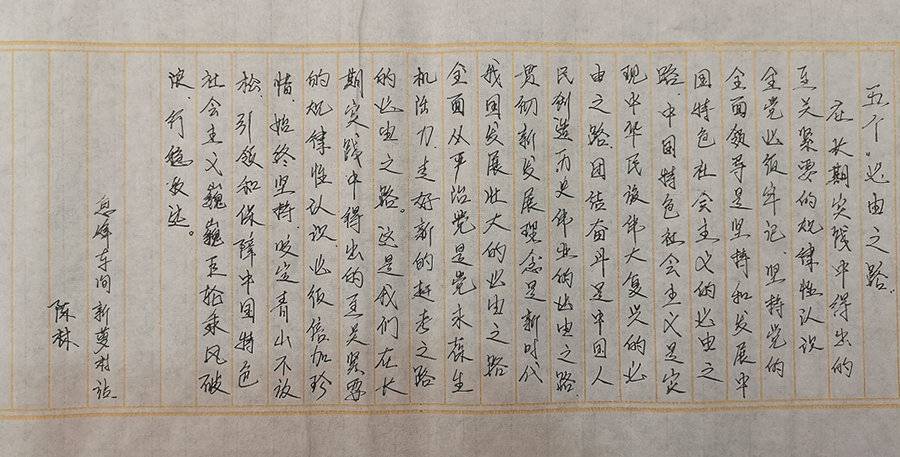 五个"必由之路
在长期实践中得出的
至关紧要的规律性认识
全党必须牢记、坚持党的
全面领导是坚持和发展中
国特色社会主义的必由之
路、中国特色社会主义是实
现中华民族伟大复兴的必
由之路、团结奋斗是中国人
民创造历史伟业的必由之路
贯彻新发展理念是新时代
我国发展壮大的必由之路
全面从严治党是党永葆生
机活力、走好新的赶考之路
的必由之路。这是我们在长
期实践中得出的至关紧要
的规律性认识必须倍加珍
惜、始终坚持、咬定青山不放
松、引领和保障中国特色
社会主义巍巍巨轮乘风破
浪、行稳致远。
息烽车间新村站
陈林